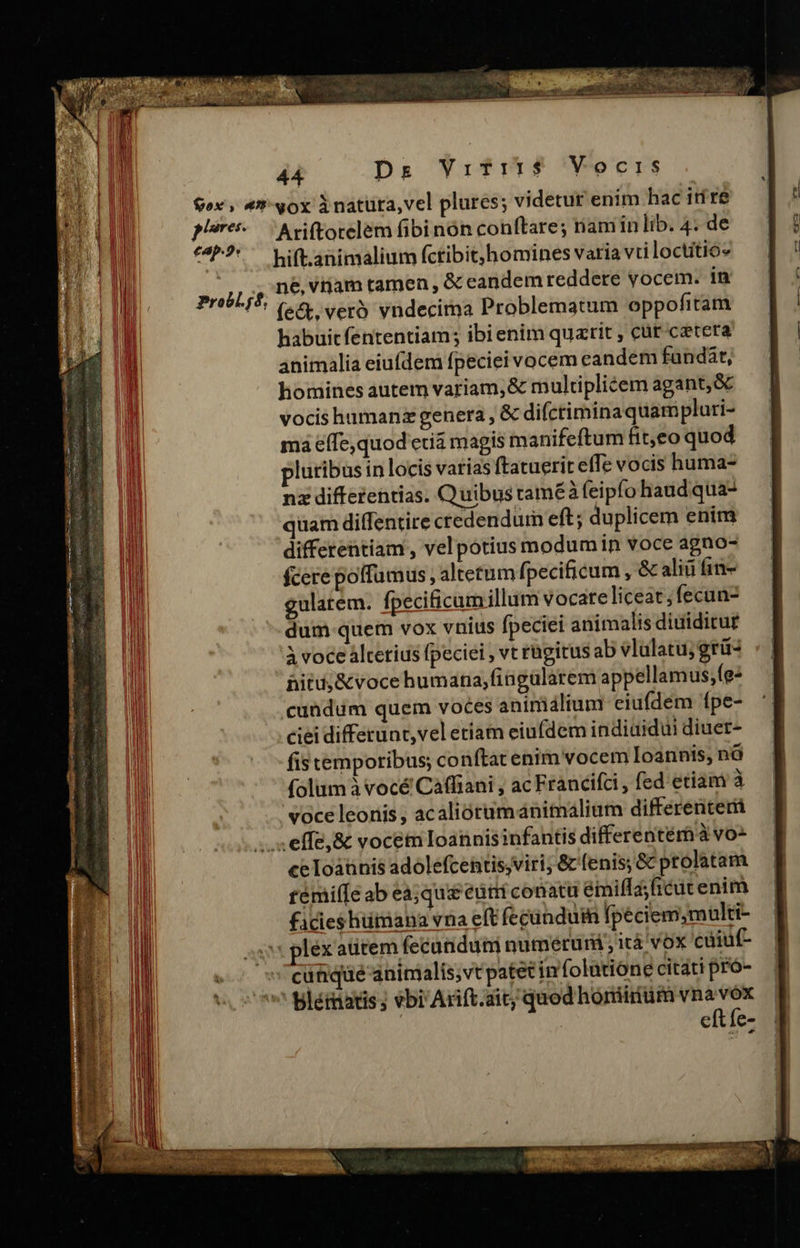 44 De Vitiis Vocis
Vox, an vox à natura, vel plures; videtur enim hac in re
plures. Ariſtotelem ſibi non conſtare; nam in lib. 4. de
cap. 9. hiſt. animalium ſcribit, homines varia vti locutio-
ne, vnam tamen, & eandem reddere vocem. in
Probl. ſect. verò vndecima Problematum oppoſitam
habuit ſententiam; ibi enim quærit, cur cætera
animalia eiuſdem ſpeciei vocem eandem fundãt,
homines autem variam, & multiplicem agant, &
vocis humanæ genera, & diſcrimina quam pluri-
ma eſſe, quod etiã magis manifeſtum fit, eo quod
pluribus in locis varias ſtatuerit eſſe vocis huma-
næ differentias. Quibus tamẽ à ſeipſo haud qua-
quam diſſentire credendum eſt; duplicem enim
differentiam, vel potius modum in voce agno-
ſcere poſſumus, alterum ſpecificum, & aliũ ſin-
gularem. ſpecificum illum vocare liceat, ſecun-
dum quem vox vnius ſpeciei animalis diuiditur
à voce alterius ſpeciei, vt rugitus ab vlulatu, grũ-
nitu, & voce humana, ſingularem appellamus, ſe-
cundum quem voces animalium eiuſdem ſpe-
ciei differunt, vel etiam eiuſdem indiuidui diuer-
ſis temporibus; conſtat enim vocem Ioannis, nõ
ſolum à vocé Caſſiani, ac Franciſci, ſed etiam à
voce leonis, ac aliorum animalium differentem
eſſe, & vocem Ioannis infantis differentem à vo-
ce Ioannis adoleſcentis, viri, & ſenis; & prolatam
remiſſe ab ea, quæ cum conatu emiſſa, ſicut enim
facies humana vna eſt ſecundum ſpeciem, multi-
plex autem ſecundum numerum, ita vox cuiuſ-
cunque animalis, vt patet in ſolutione citati pro-
blematis; vbi Ariſt. ait, quod hominum vna vox
eſt ſe-